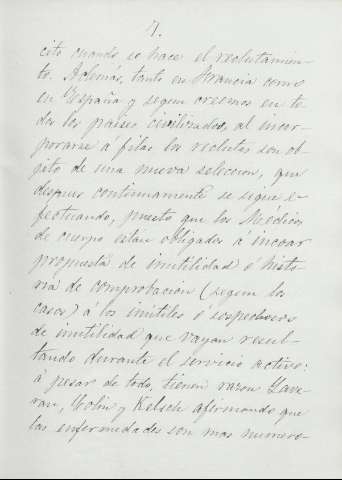 7.
cito cuando se hace el reclutamien-
to. Además, tanto en Francia como
en España y segun creemos en to-
dos los paises civilizados, al incor-
porarse á filas los reclutas son ob-
jeto de una nueva seleccion, que
despues continuamente se sigue e-
fectuando, puesto que los Médicos
de cuerpo están obligados á incoar
propuesta de inutilidad ó histo-
ria de comprobacion (segun los
casos) á los inútiles ó sospechosos
de inutilidad que vayan resul-
tando durante el servicio activo:
á pesar de todo, tienen razon Lave-
ran, Colin y Kelsch afirmando que
las enfermedades son mas numero-